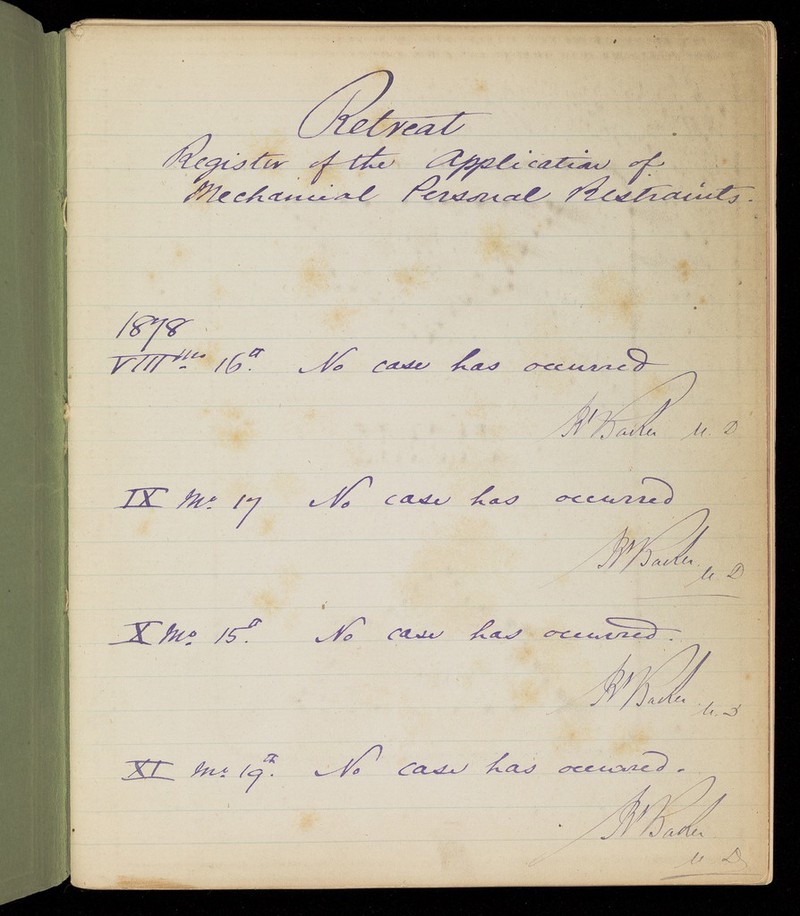 Retreat
Register of the Application of
Mechanical Personal Restraints.
1878
VIII mo. 16th. No case has occurred
Rt Baker M. D
IX Mo. 17 No case has occurred
Rt Baker M. D
X Mo. 15th. No case has occurred.
Rt Baker M. D
XI Mo. 19th. No case has occurred.
Rt Baker
M. D.